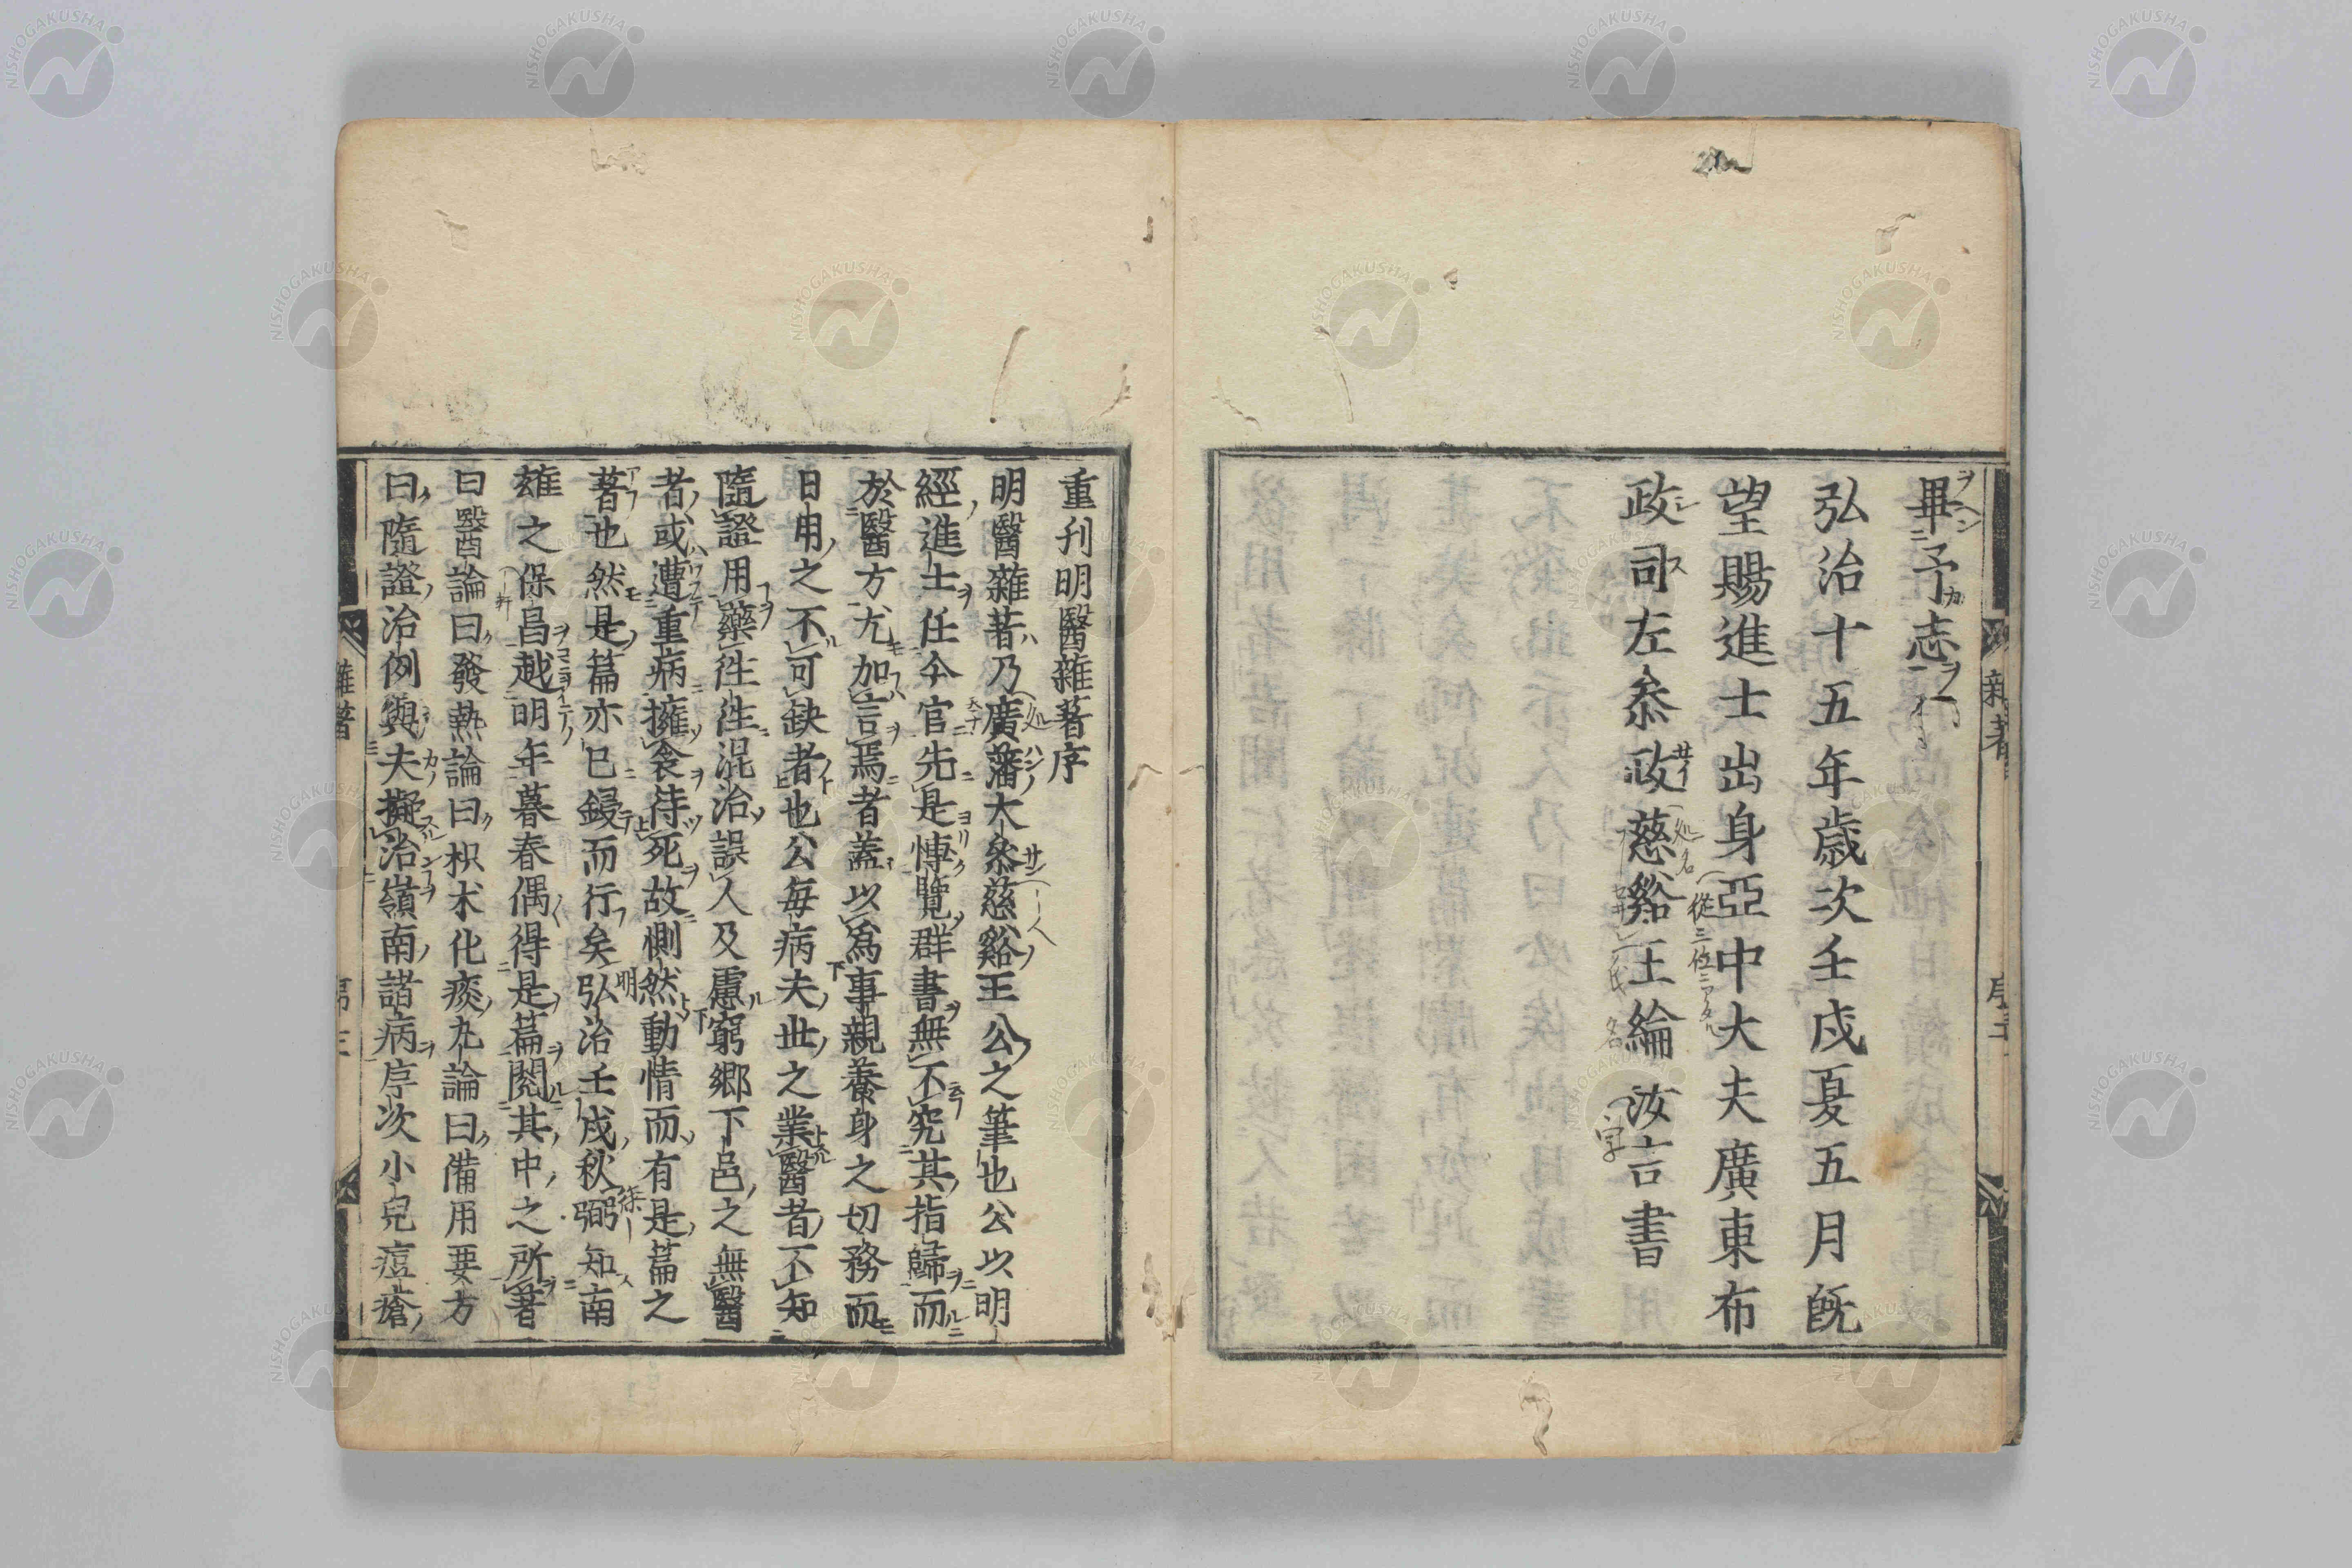 畢予志
弘治十五年歲次壬戌夏五月旣
望賜進士出身亞中大夫廣東布
政司左叅政慈谿王綸汝言書
重刊明醫雜著序
明醫雜著乃廣藩大叅慈谿王公之筆也公以明
經進士任今官先是愽覽群書無不究其指歸而
於醫方尤加言焉者蓋以爲事親養身之切務而
日用之不可缺者也公每病夫世之業醫者不知
隨證用藥徃徃混治誤人及慮窮鄉下邑之無醫
者或遭重病擁衾待死故惻然動情而有是篇之
著也然是篇亦已鋟而行矣弘治壬戌秋弼知南
雄之保昌越明年暮春偶得是篇閱其中之所著
曰醫論曰發熱論曰枳朮化痰丸論曰備用要方
曰隨證治例與夫擬治嶺南諸病序次小兒痘瘡
雜著
NISHOGAKUSHA